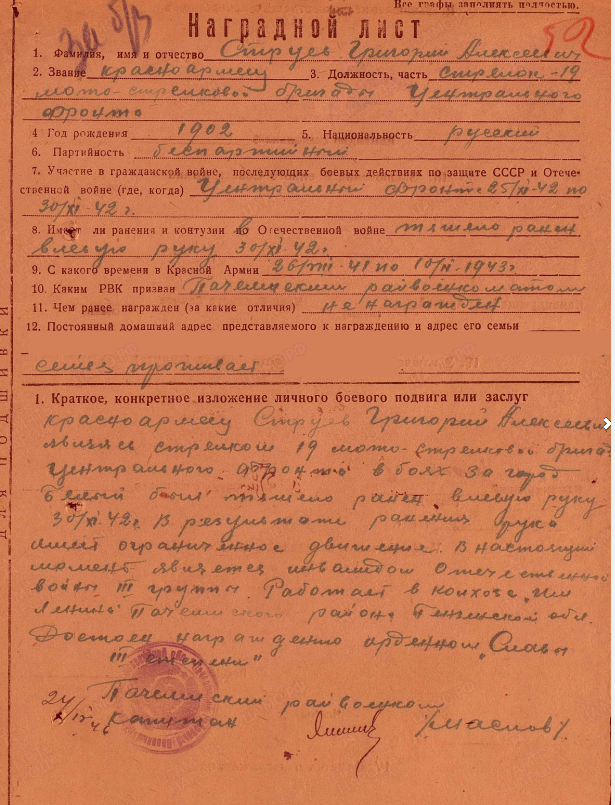 Все графы заполнять полностью.
за б/з
Наградной лист
1. Фамилия, имя и отчество Струев Григорий Алексеевич
2. Звание красноармеец 3. Должность, часть стрелок - 19
мото-стрелковой бригады Центрального
Фронта
4 Год рождения 1902 5. Национальность русский
6. Партийность беспартийный
7. Участие в гражданской войне, последующих боевых действиях по защите СССР и Отече-
ственной войне (где, когда) Центральный Фронт с 25/XI-42 по
30/XI-42 г.
8. Имеет ли ранения и контузии во Отечественной войне тяжело ранен
в левую руку 30/XI-42 г.
9. С какого времени в Красной Армии 26/VIII-41 по 10/II-1943 г
10. Каким РВК призван Пачелмским райвоенкоматом
11. Чем ранее награжден (за какие отличия) не награжден
12. Постоянный домашний адрес представляемого к награждению и адрес его семьи
семья проживает
1. Краткое, конкретное изложение личного боевого подвига или заслуг
красноармеец Струев Григорий Алексеевич
являясь стрелком 19 мото-стрелковой бригады
Центрального фронта в боях за город
Белый был тяжело ранен в левую руку
30/XI-42 г. В результате ранения рука
имеет ограниченное движение. В настоящий
момент является инвалидом Отечественной
войны III группы. Работает в колхозе "им
Ленина" Пачелмского района Пензенской обл.
Достоин награждению орденом "Славы
III степени"
Пачелмский райвоенком
24/IV 46 капитан /Маслов/
ДЛЯ ПОДШИВКИ